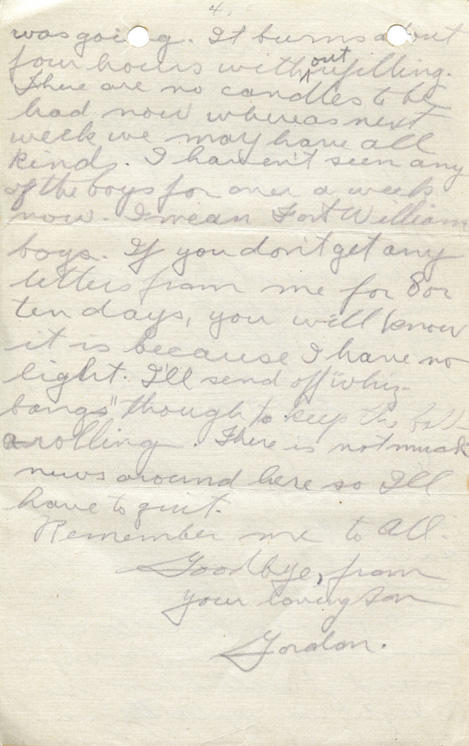 4.
was going. It burns about
four hours without refilling.
There are no candles to be
had now whereas next
week we may have all
kinds. I haven't seen any
of the boys for over a week
now. I mean Fort William
boys. If you don't get any
letters from me for 8 or
ten days, you will know
it is because I have no
light. I'll send off "whiz-
bangs" though to keep the ball
a rolling. There is not much
news around here so I'll
have to quit.
Remember me to all.
Goodbye, from
your loving son
Gordon.